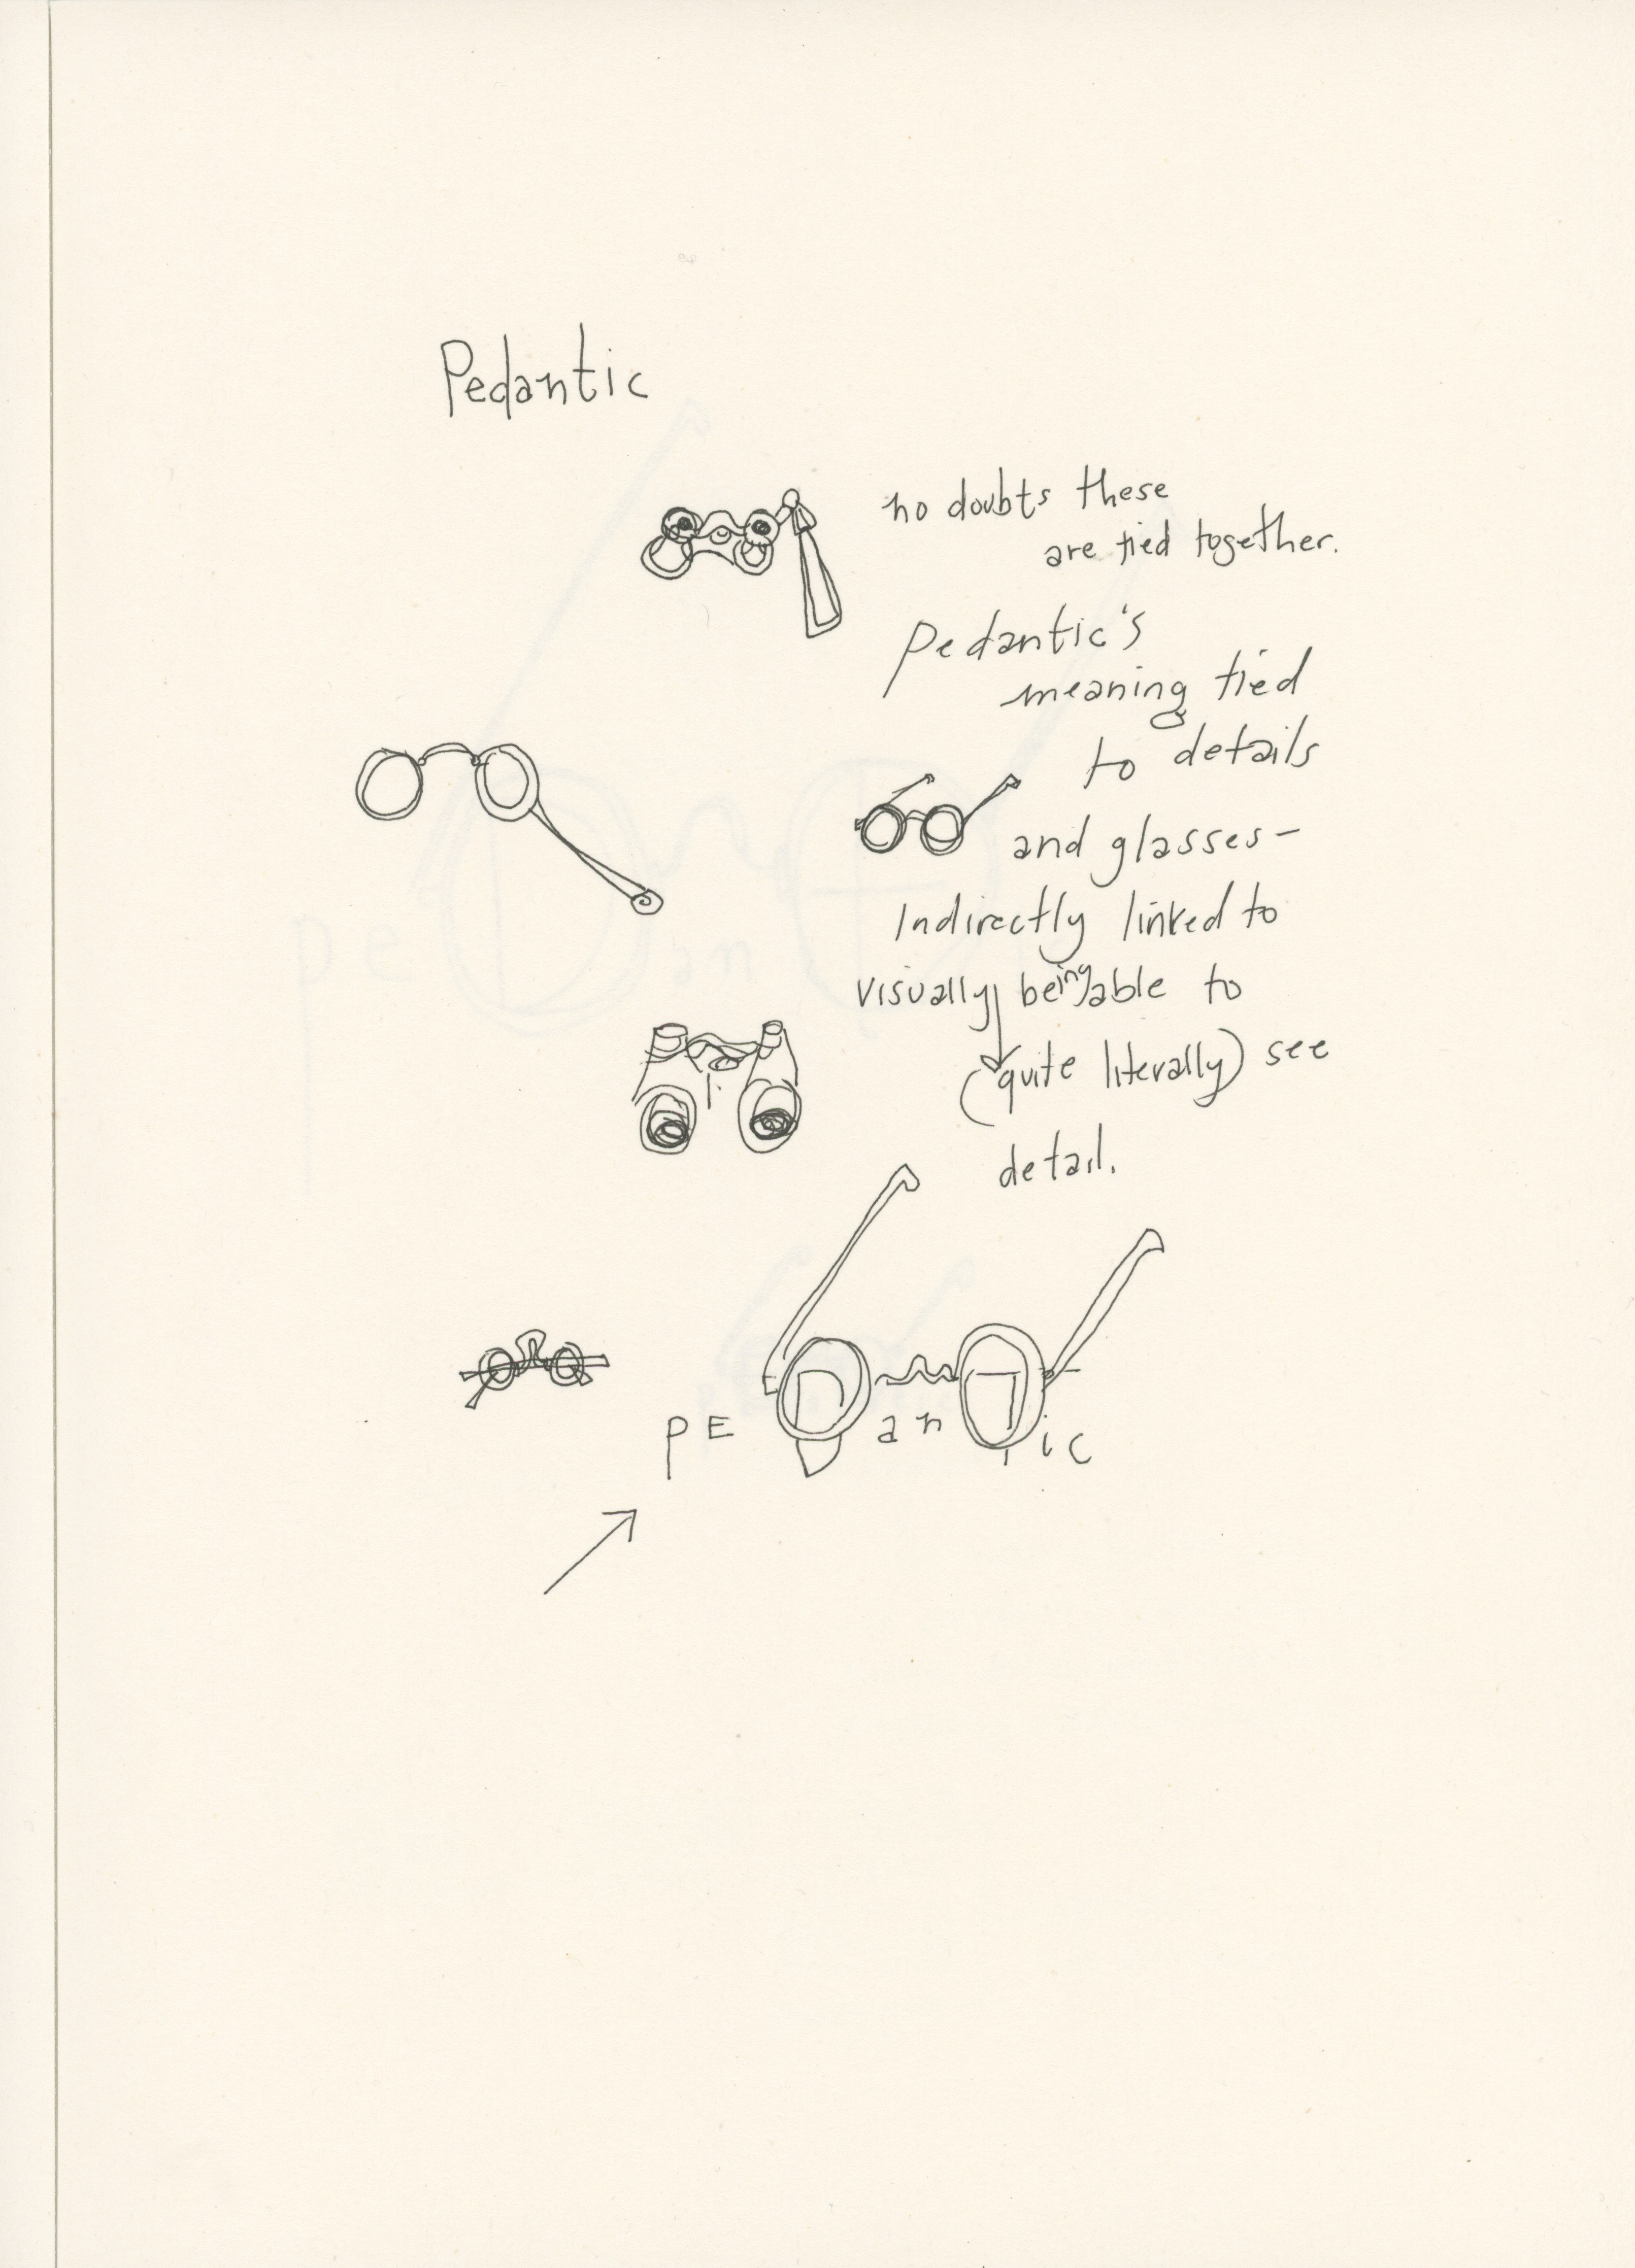 Pedantic
no doubts these
are tied together.
Pedantic's
meaning tied
to details
and glasses-
Indirectly linked to
visually being able to
(quite literally) see
detail.
PE D an T ic